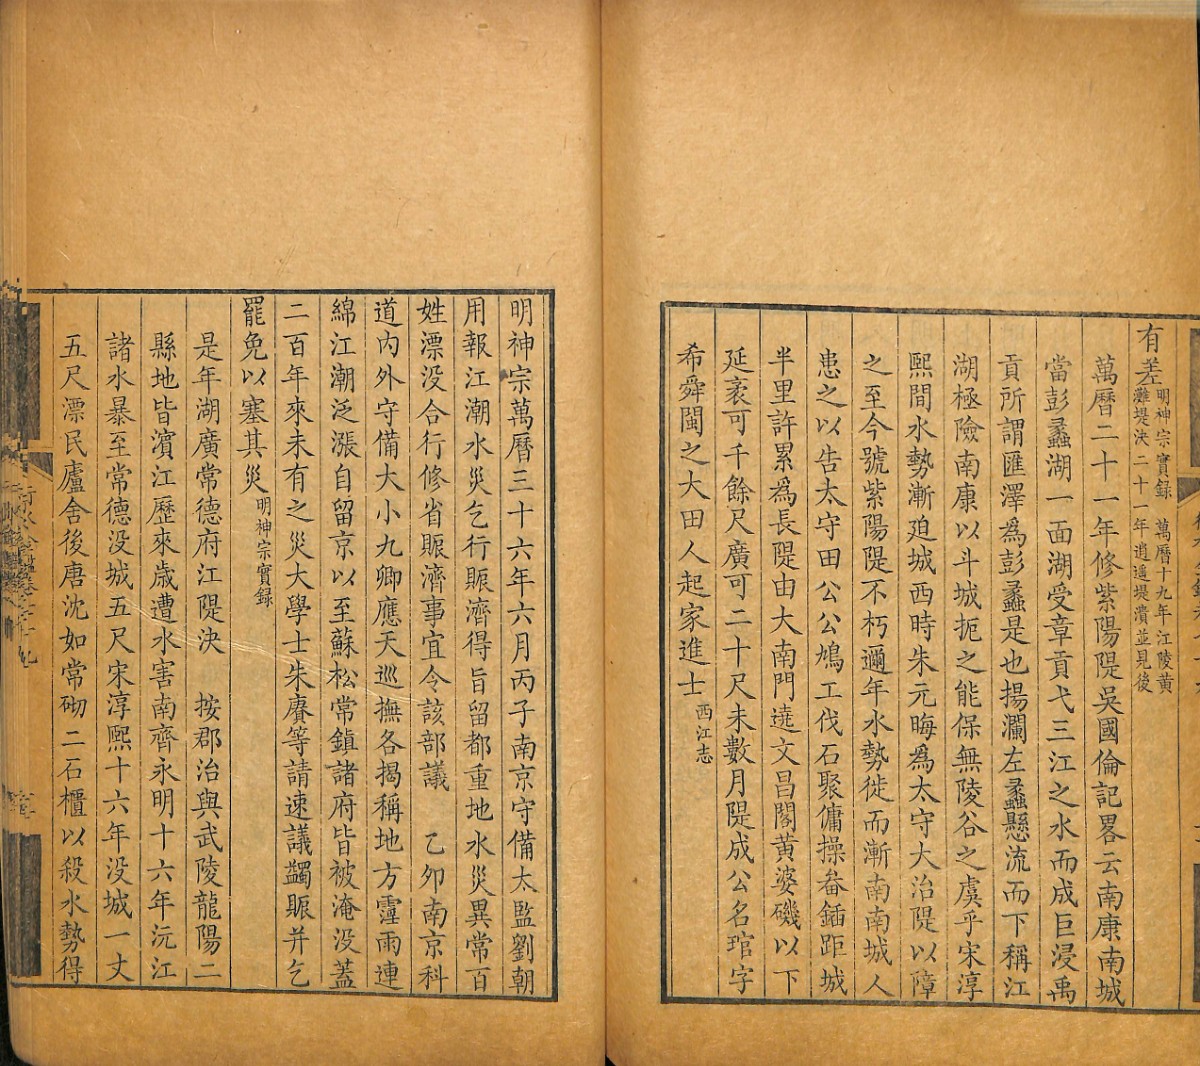 有差明神宗實録　萬曆十九年江陵黄
灘堤決二十一年逍遥堤潰並見後
萬曆二十一年修紫陽隄吳國倫記畧云南康南城
當彭蠡湖一面湖受章貢弋三江之水而成巨浸禹
貢所謂匯澤爲彭蠡是也揚瀾左蠡懸流而下稱江
湖極險南康以斗城扼之能保無陵谷之虞乎宋淳
熙間水勢漸迫城西時朱元晦爲太守大治隄以障
之至今號紫陽隄不朽邇年水勢徙而漸南南城人
患之以告太守田公公鳩工伐石聚傭操畚鍤距城
半里許累爲長隄由大南門遶文昌閣黄婆磯以下
延袤可千餘尺廣可二十尺未數月隄成公名琯字
希舜閩之大田人起家進士西江志
明神宗萬曆三十六年六月丙子南京守備太監劉朝
用報江潮水災乞行賑濟得旨留都重地水災異常百
姓漂没合行修省賑濟事宜令該部議　乙卯南京科
道内外守備大小九卿應天巡撫各揭稱地方霪雨連
綿江潮泛漲自留京以至蘇松常鎮諸府皆被淹没蓋
二百年來未有之災大學士朱賡等請速議蠲賑并乞
罷免以塞其災明神宗實録
是年湖廣常德府江隄決　按郡治與武陵龍陽二
縣地皆濱江歷來歲遭水害南齊永明十六年沅江
諸水暴至常德没城五尺宋淳熙十六年没城一丈
五尺漂民廬舍後唐沈如常砌二石櫃以殺水勢得